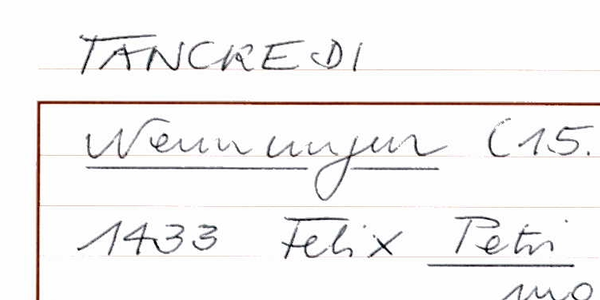 TANCREDI
Wennungen (15.
1433 Felix Petri